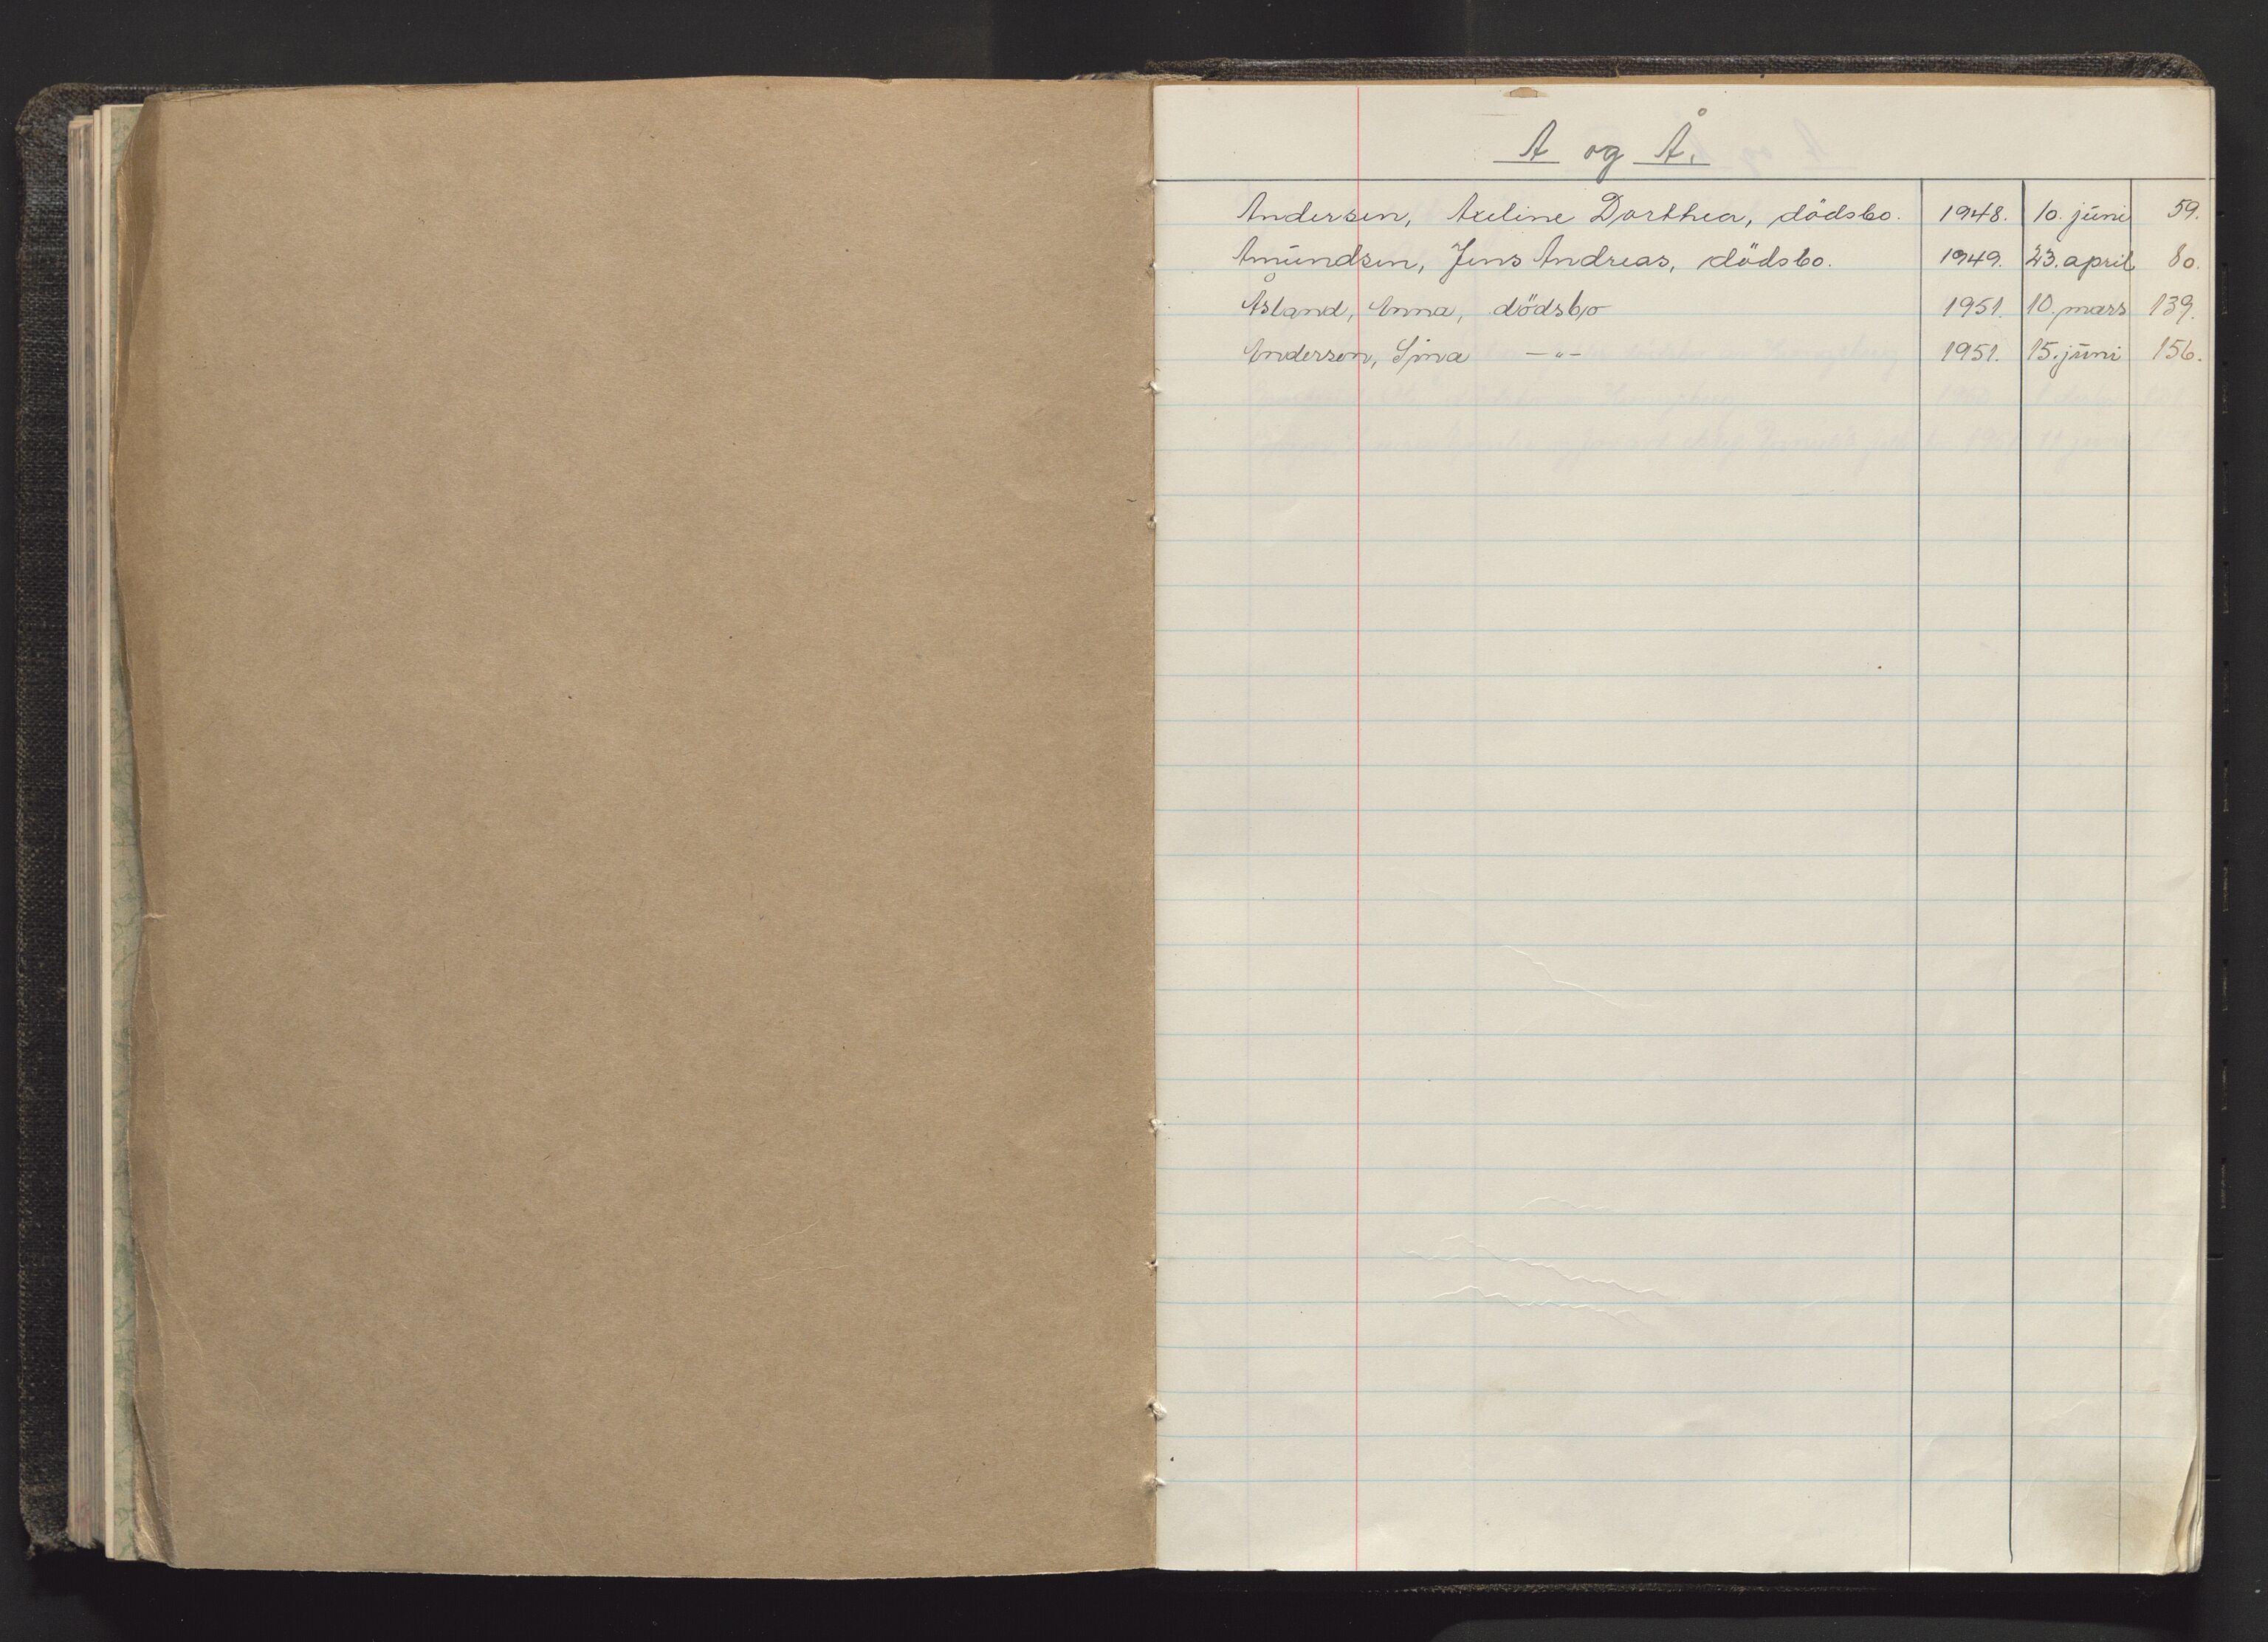 A og Å.
Andersen, Axeline Dorthea, dödsbo. 1948. 10. juni 59.
Amundsen, Jens Andreas, dödsbo. 1949. 23. april 80.
Åsland, Anna, dödsbo 1951. 10. mars 139.
Anderson, Sina —"— 1951. 15. juni 156.